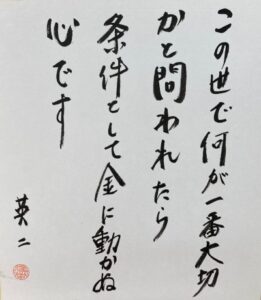 この世で何が一番大切
かと問われたら
条件として金に動かぬ
心です
英二